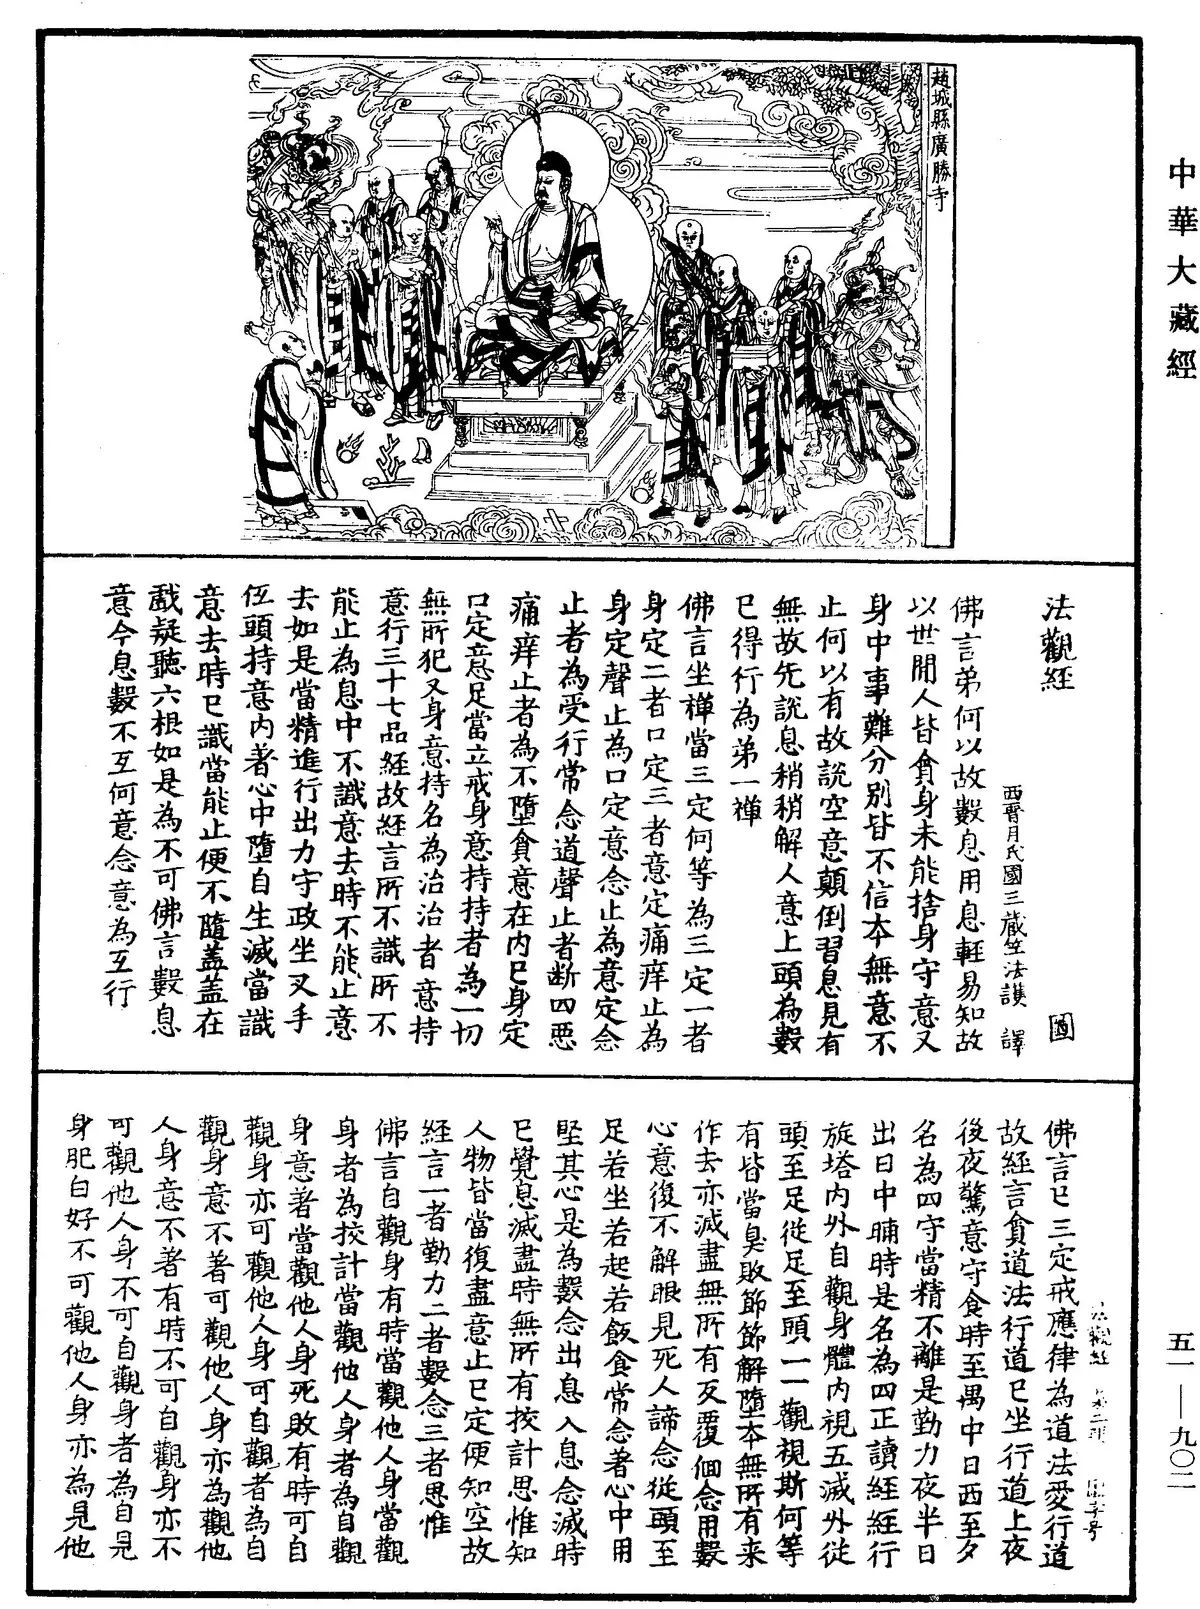 中華大藏經
趙城縣廣勝寺
法觀經
圖
西晉月氏國三藏竺法護 譯
佛言弟何以故數息用息輕易知故
以世間人皆貪身未能捨身守意又
身中事難分別皆不信本無意不
止何以有故說空意顛倒習息見有
無故先說息稍稍解人意上頭為數
已得行為弟一禪
佛言坐禪當三定何等為三定一者
身定二者口定三者意定痛痒止為
身定聲止為口定意念止為意定念
止者為受行常念道聲止者斷四惡
痛痒止者為不墮貪意在內已身定
口定意足當立戒身意持持者為一切
無所犯又身意持名為治治者意持
意行三十七品經故經言所不識所不
能止為息中不識意去時不能止意
去如是當精進行出力守政坐叉手
伍頭持意內著心中墮自生滅當識
意去時已識當能止便不隨蓋蓋在
戲疑聽六根如是為不可佛言數息
意今息數不互何意念意為互行
佛言已三定戒應律為道法愛行道
故經言貪道法行道已坐行道上夜
後夜驚意守食時至禺中日西至夕
名為四守當精不離是勤力夜半日
出日中晡時是名為四正讀經經行
旋塔內外自觀身體內視五滅外從
頭至足從足至頭一一觀視斯何等
有皆當臭敗節節解墮本無所有来
作去亦滅盡無所有反覆佪念用數
心意復不解眼見死人諦念從頭至
足若坐若起若飯食常念著心中用
堅其心是為數念出息入息念滅時
已覺息滅盡時無所有挍計思惟知
人物皆當復盡意止已定便知空故
經言一者勤力二者數念三者思惟
佛言自觀身有時當觀他人身當觀
身者為挍計當觀他人身者為自觀
身意著當觀他人身死敗有時可自
觀身亦可觀他人身可自觀者為自
觀身意不著可觀他人身亦為觀他
人身意不著有時不可自觀身亦不
可觀他人身不可自觀身者為自見
身肥白好不可觀他人身亦為見他
五一—九〇二